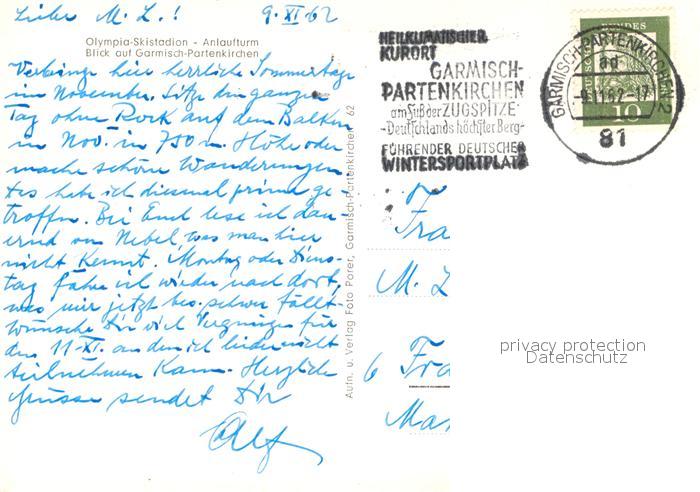 Lieber M. L.! 9. XI 62
Olympia-Skistadion - Anlaufturm
Blick auf Garmisch-Partenkirchen
Verbringe hier herrliche Sommertage
im November. Sitze den ganzen
Tag ohne Rock auf dem Balkon
im Nov. in 750 m Höhe oder
mache schöne Wanderungen
Es habe ich diesmal prima ge-
troffen. Bei Euch lese ich dau
ernd von Nebel, was man hier
nicht kennt. Montag oder Diens-
tag fahre ich wieder nach dort,
was mir jetzt bes. schwer fällt.
Wünsche Dir viel Vergnügen für
den 11. XI. an dem ich leider nicht
teilnehmen kann. Herzliche
Grüsse sendet Dir
Alf
Aufn. u. Verlag Foto Porer, Garmisch-Partenkirchen 62
HEILKLIMATISCHER
KURORT
GARMISCH-
PARTENKIRCHEN
am Fuß der ZUGSPITZE
-Deutschlands höchster Berg-
FÜHRENDER DEUTSCHER
WINTERSPORTPLATZ
GARMISCH-PARTENKIRCHEN 2
ad
-9.11.62-17
81
10
Fra
M. L
6 Fra
Ma
privacy protection
Datenschutz